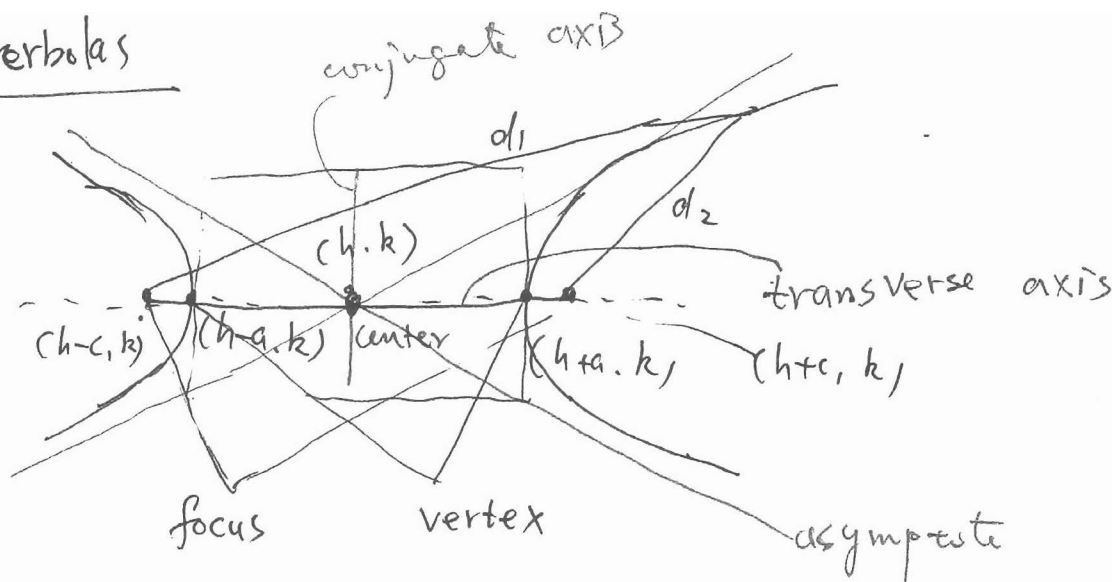 erbolas
conjugate axis
d1
d2
(h.k)
transverse axis
(h-c, k)
(h-a.k)
center
(h+a.k)
(h+c, k)
focus
vertex
asymptote